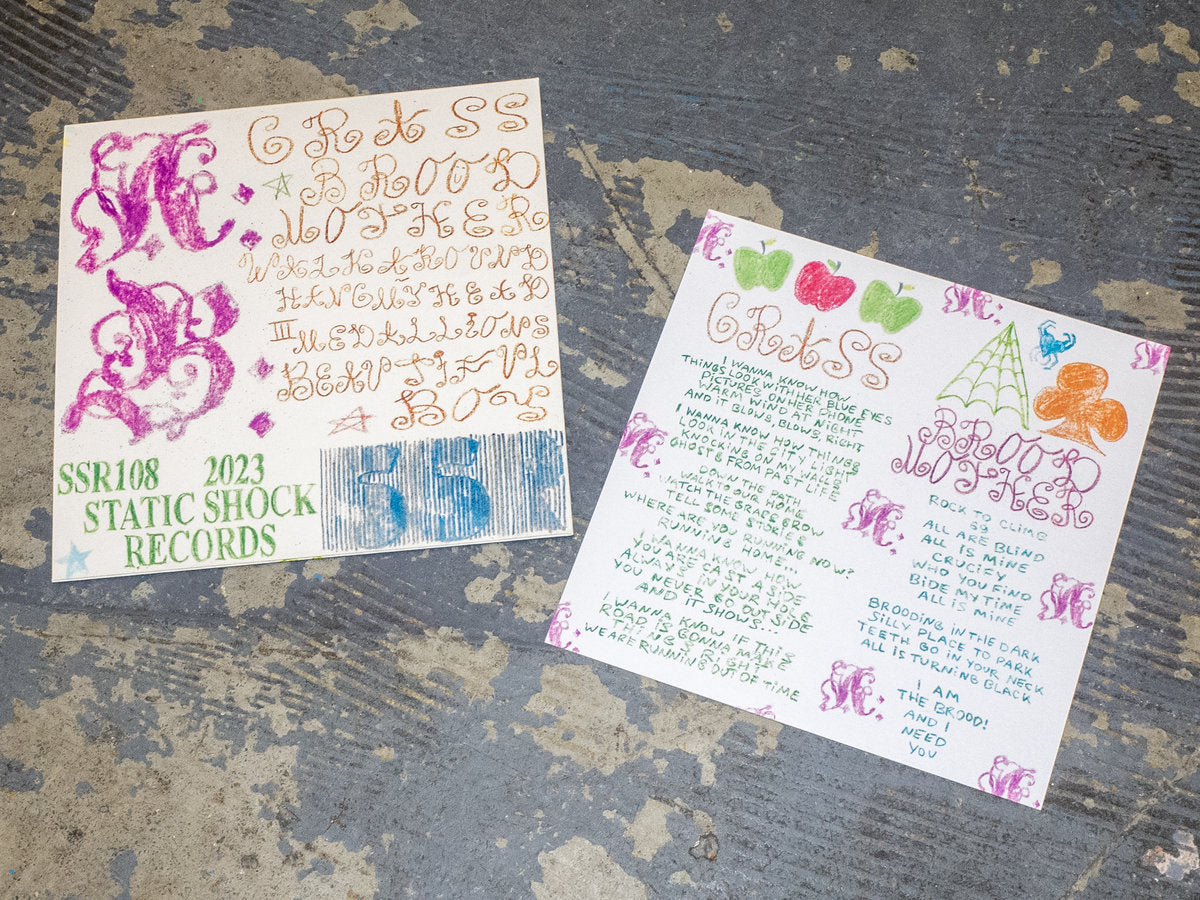 A.
GRASS
BROOD
MOTHER
WALK AROUND
HANG MY HEAD
B.
III MEDALLIONS
BEAUTIFUL
BOY
SSR108 2023
STATIC SHOCK
RECORDS
SSR
GRASS
I WANNA KNOW HOW
THINGS LOOK WITH HER BLUE EYES
PICTURES ON HER PHONE
WARM WIND AT NIGHT
AND IT BLOWS, BLOWS, RIGHT
I WANNA KNOW HOW THINGS
LOOK IN THE CITY LIGHT
KNOCKING ON MY WALLS
GHOSTS FROM PAST LIFE
DOWN THE PATH
WALK TO OUR HOME
WATCH THE GRASS GROW
TELL SOME STORIES
WHERE ARE YOU RUNNING NOW?
RUNNING HOME...
I WANNA KNOW HOW
YOU ARE CAST ASIDE
ALWAYS IN YOUR HOLE
YOU NEVER GO OUTSIDE
AND IT SHOWS...
I WANNA KNOW IF THIS
ROAD IS GONNA MAKE
THINGS RIGHT
WE ARE RUNNING OUT OF TIME
BROOD
MOTHER
ROCK TO CLIMB
SO
ALL ARE BLIND
ALL IS MINE
CRUCIFY
WHO YOU FIND
BIDE MY TIME
ALL IS MINE
BROODING IN THE DARK
SILLY PLACE TO PARK
TEETH GO IN YOUR NECK
ALL IS TURNING BLACK
I AM
THE BROOD!
AND I
NEED
YOU